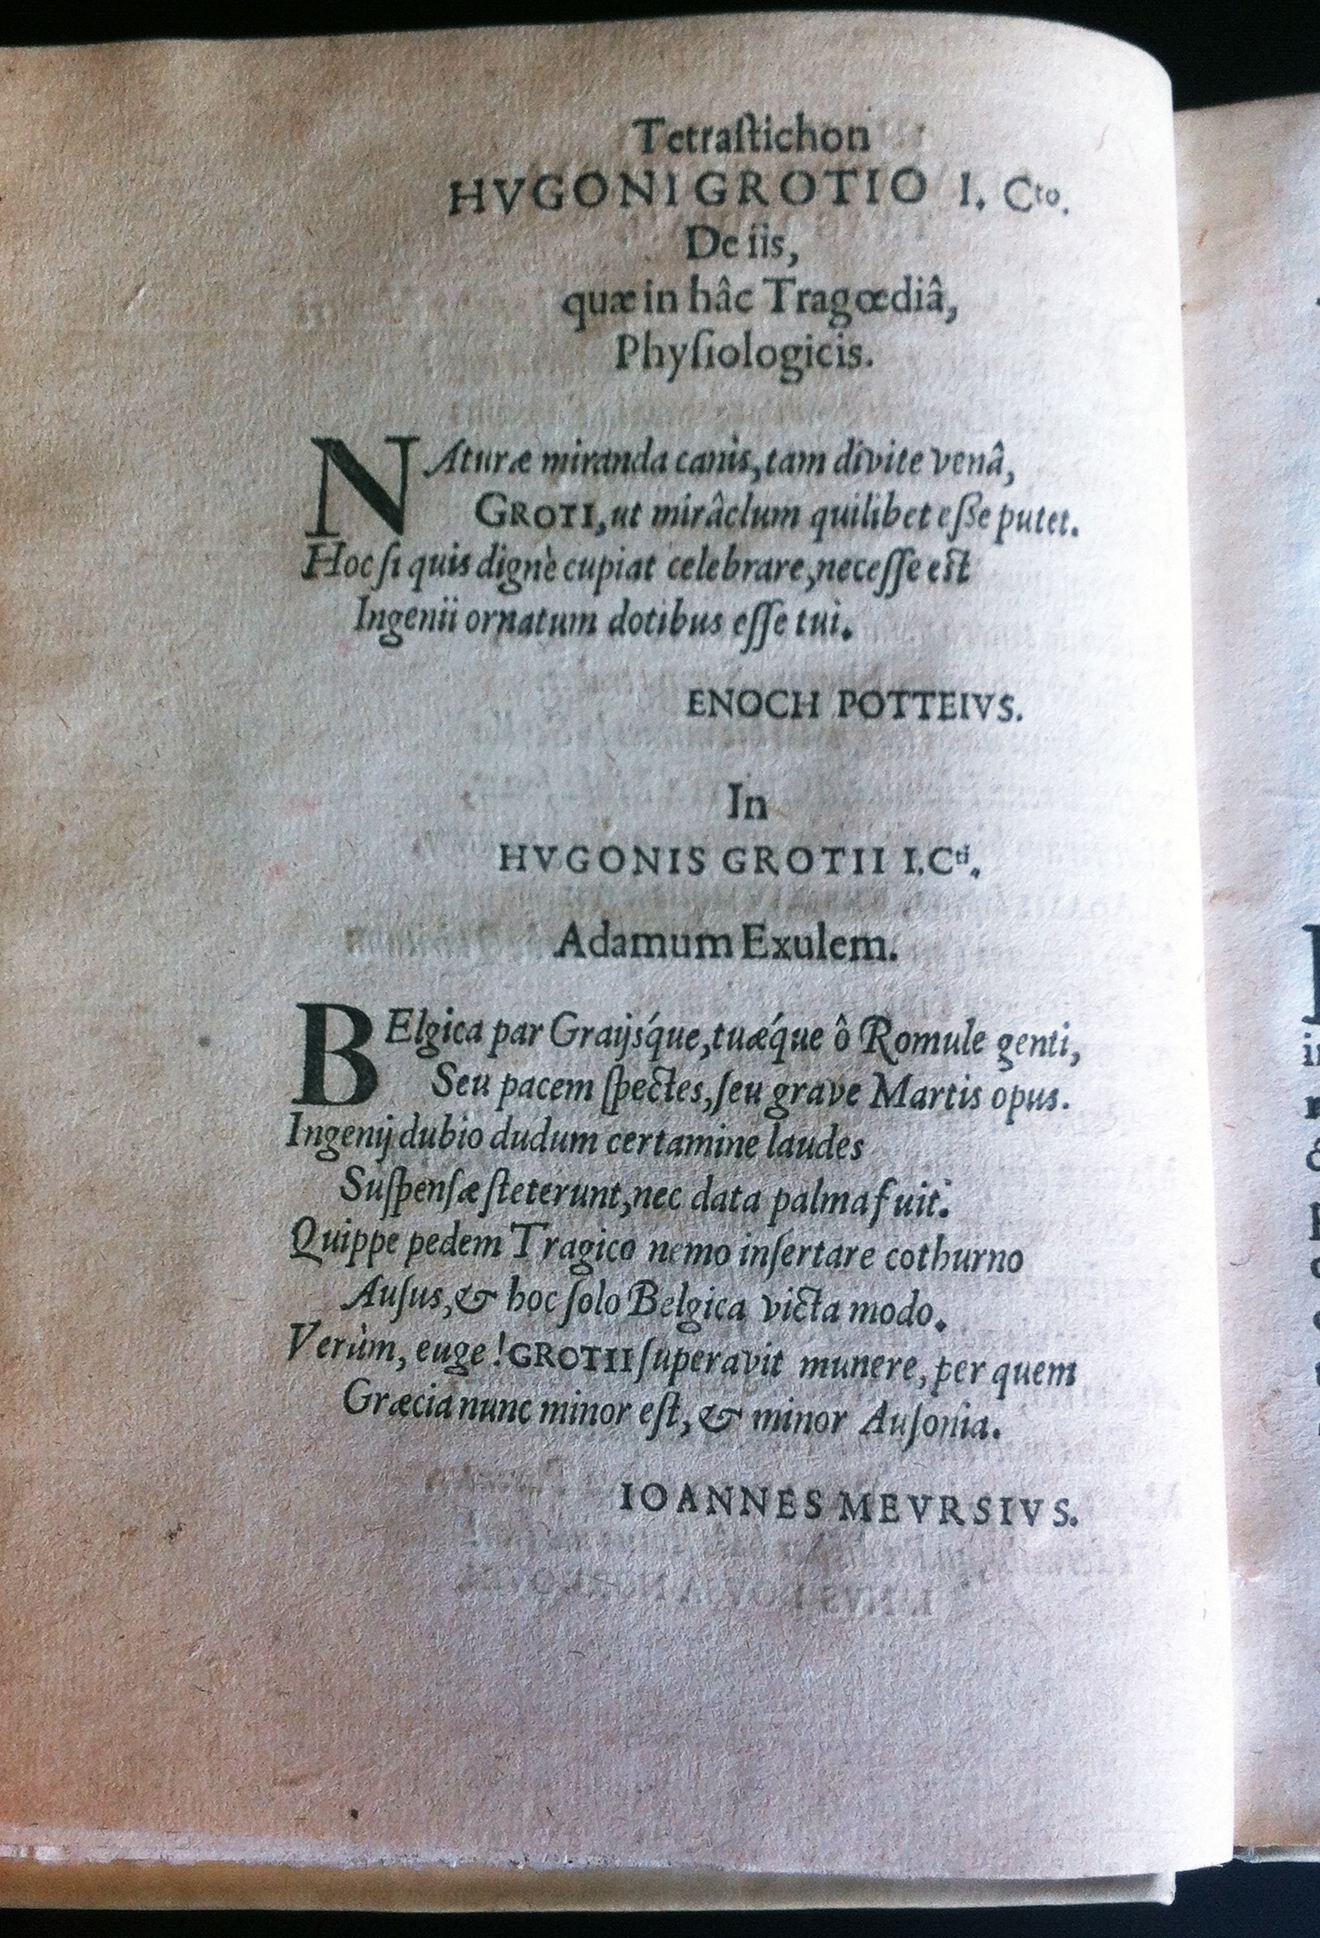 Tetraſtichon
HVGONI GROTIO I. Cto.
De iis,
quæ in hâc Tragœdiâ,
Phyſiologicis.
NAturæ miranda canis, tam divite venâ,
GROTI, ut mirâclum quilibet eſse putet.
Hoc ſi quis dignè cupiat celebrare, neceſſe est
Ingenii ornatum dotibus eſſe tui.
ENOCH POTTEIVS.
In
HVGONIS GROTII I.Cti.
Adamum Exulem.
BElgica par Graijsq́ue, tuæq́ue ô Romule genti,
Seu pacem ſpectes, ſeu grave Martis opus.
Ingenij dubio dudum certamine laudes
Suſpenſæ ſteterunt, nec data palma fuit:
Quippe pedem Tragico nemo inſertare cothurno
Auſus, & hoc ſolo Belgica victa modo.
Verùm, euge! GROTII ſuperavit munere, per quem
Græcia nunc minor eſt, & minor Auſonia.
IOANNES MEVRSIVS.